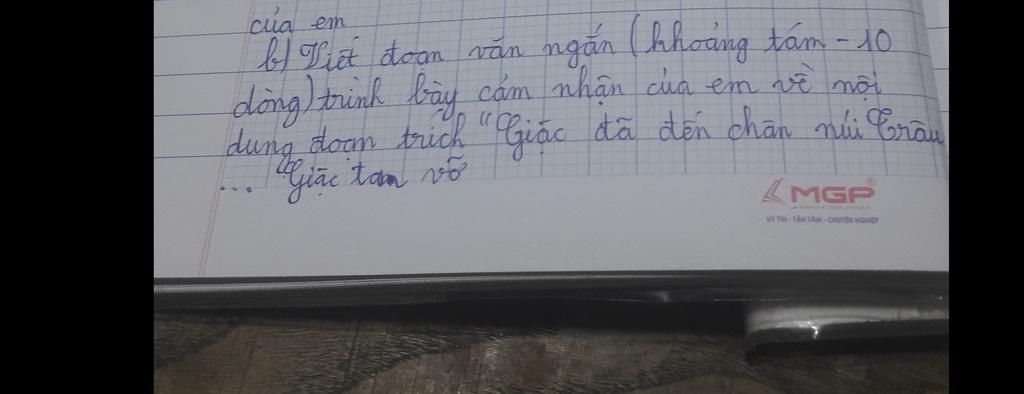 của em
b) Viết đoạn văn ngắn (khoảng tám - 10
dòng) trình bày cảm nhận của em về nội
dung đoạn trích "Giặc đã đến chân núi Trâu
... "Giặc tan vỡ
MGP®
UY TÍN - TẬN TÂM - CHUYÊN NGHIỆP